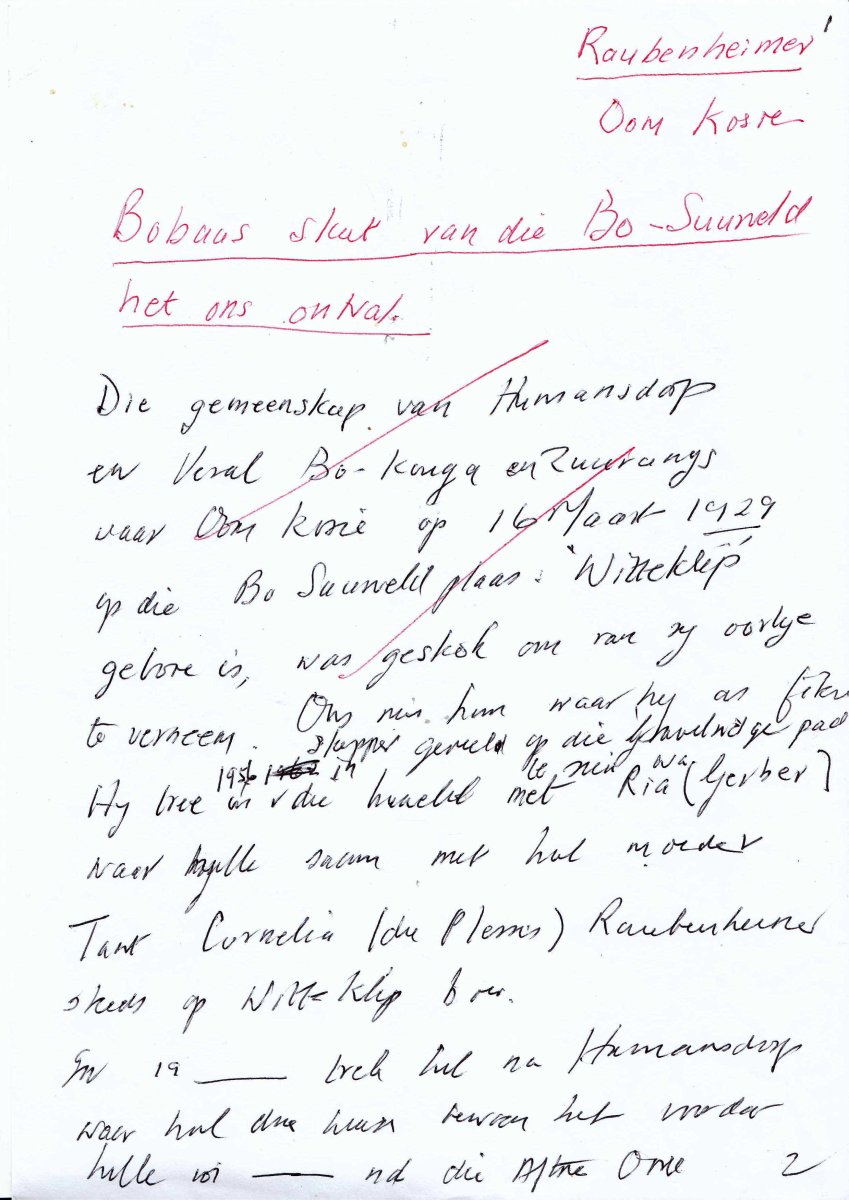 1
Raubenheimer
Oom Kosie
Bobaas skut van die Bo-Suurveld
het ons ontval.
Die gemeenskap van Humansdorp
en Veral Bo-Kouga en Zuuranys
waar Oom Kosie op 16 Maart 1929
op die Bo Suurveld plaas: "Witteklip"
gebore is, was geskok om van sy oorlye
te verneem. Ons mis hom waar hy as fikse
stapper gereeld op die Gravelwdge pad
te sien wa
1956 in
Hy tree in die huwelik met Ria (Gerber)
waar hulle saam met hul moeder
Tant Cornelia (du Plessis) Raubenheimer
steeds op Witte Klip boer.
In 19 ___ trek hul na Humansdorp
waar hul die huis bewoon het voordat
hulle ___ na die Aftree Orde
2